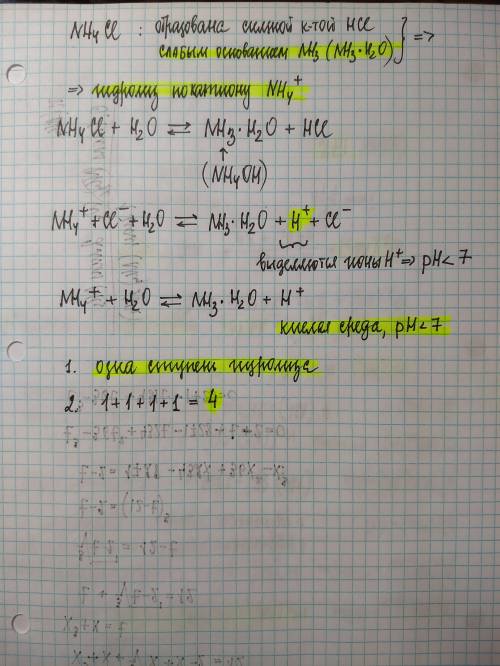 NH₄Cl : образована сильной к-той HCl
слабым основанием NH₃ (NH₃·H₂O) } =>
=> гидролиз по катиону NH₄⁺
NH₄Cl + H₂O ⇄ NH₃·H₂O + HCl
↑
(NH₄OH)
NH₄⁺ + Cl⁻ + H₂O ⇄ NH₃·H₂O + H⁺ + Cl⁻
выделяются ионы H⁺ => pH < 7
NH₄⁺ + H₂O ⇄ NH₃·H₂O + H⁺
кислая среда, pH < 7
1. одна ступень гидролиза
2. 1+1+1+1 = 4